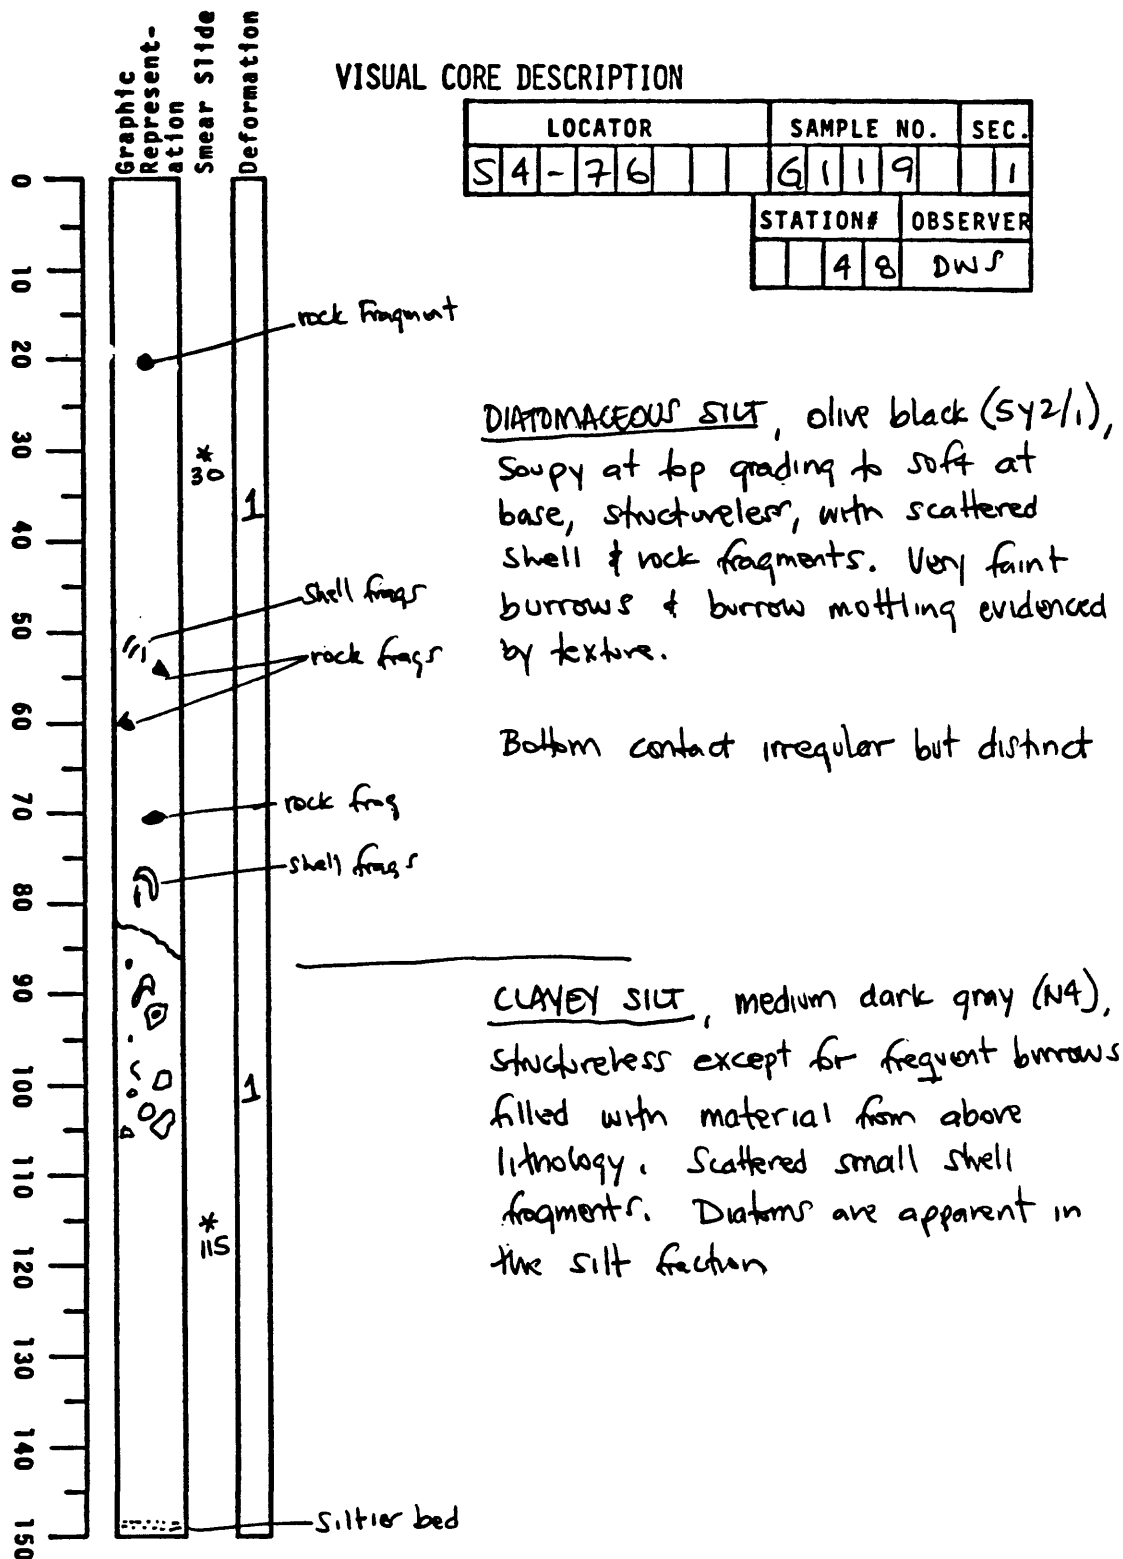 Graphic
Represent-
ation
Smear Slide
Deformation
VISUAL CORE DESCRIPTION
LOCATOR SAMPLE NO. SEC.
S4-76 G119 1
STATION# OBSERVER
48 DWS
0
10
20
30
40
50
60
70
80
90
100
110
120
130
140
150
rock Fragment
*
30
1
shell frags
rock frags
rock frag
shell frags
1
*
115
siltier bed
DIATOMACEOUS SILT, olive black (5Y2/1),
Soupy at top grading to soft at
base, structureless, with scattered
shell & rock fragments. Very faint
burrows & burrow mottling evidenced
by texture.
Bottom contact irregular but distinct
CLAYEY SILT, medium dark gray (N4),
structureless except for frequent burrows
filled with material from above
lithology. Scattered small shell
fragments. Diatoms are apparent in
the silt fraction